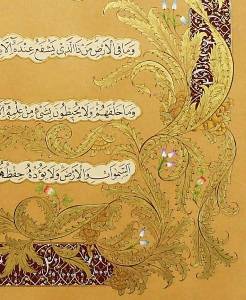 وَمَا فِی الْاَرْضِ مَنْ ذَا الَّذِی یَشْفَعُ عِنْدَهُ اِلَّا
وَمَا خَلْفَهُمْ وَلَا یُحِیطُونَ بِشَیْءٍ مِنْ عِلْمِهِ
السَّمٰوَاتِ وَالْاَرْضَ وَلَا یَؤُدُهُ حِفْظُهُمَا